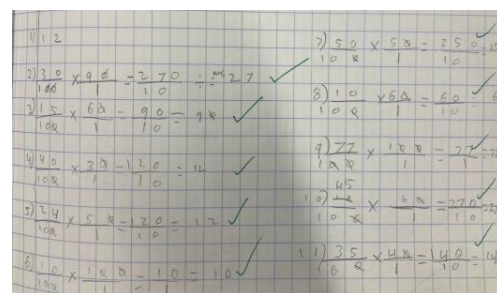 1) 12
2) 30/100 × 90/1 = 270/10 = 27
3) 15/100 × 60/1 = 90/10 = 9
4) 40/100 × 30/1 = 120/10 = 12
5) 24/100 × 50/1 = 120/10 = 12
6) 10/100 × 100/1 = 10/1 = 10
7) 50/100 × 50/1 = 250/10 =
8) 10/100 × 60/1 = 60/10 = 6
9) 77/100 × 100/1 = 77/1 =
10) 45/100 × 60/1 = 270/10 =
11) 35/100 × 40/1 = 140/10 = 14